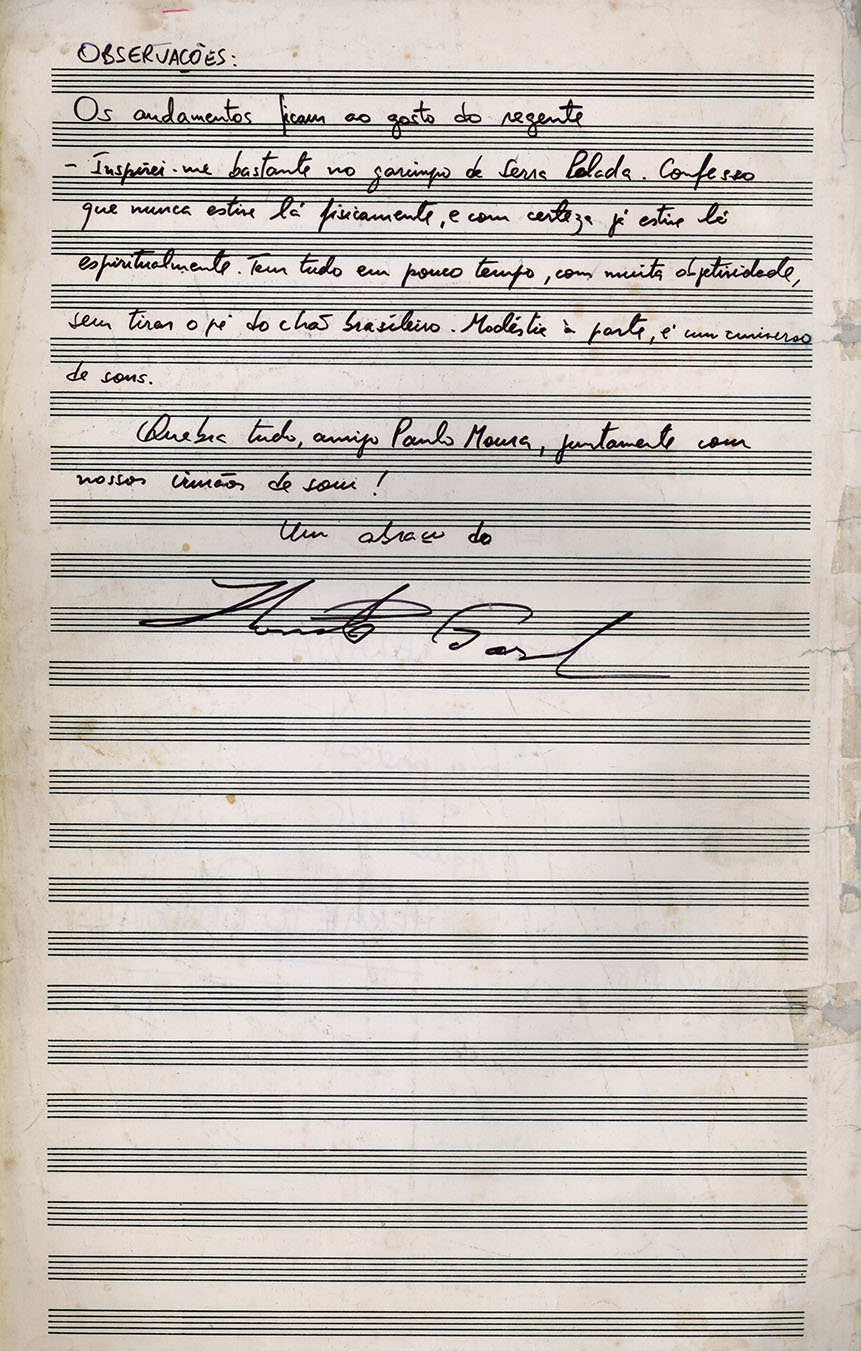 OBSERVAÇÕES:
Os andamentos ficam ao gosto do regente
- Inspirei-me bastante no garimpo de Serra Pelada. Confesso
que nunca estive lá fisicamente, e com certeza já estive lá
espiritualmente. Tem tudo em pouco tempo, com muita objetividade,
sem tirar o pé do chão brasileiro. Modéstia à parte, é um universo
de sons.
Quebra tudo, amigo Paulo Moura, juntamente com
nossos irmãos de som!
Um abraço do